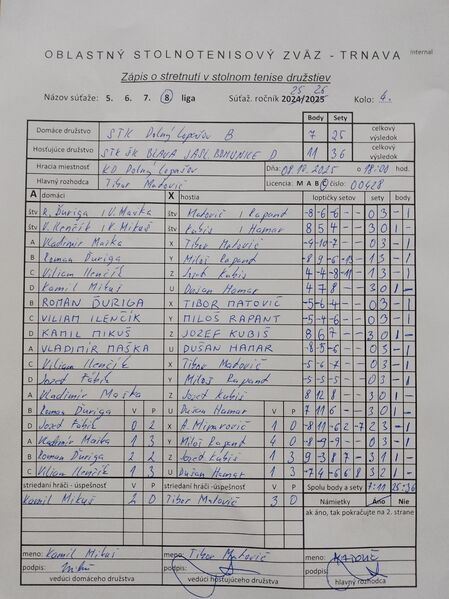 internal
OBLASTNÝ STOLNOTENISOVÝ ZVÄZ - TRNAVA
Zápis o stretnutí v stolnom tenise družstiev
25 26
Názov súťaže: 5. 6. 7. 8 liga Súťaž. ročník 2024/2025 Kolo: 4.
Body Sety
Domáce družstvo STK Dolný Lopašov B 7 25 celkový výsledok
Hosťujúce družstvo STK ŠK BLAVA JASL. BOHUNICE D 11 36 celkový výsledok
Hracia miestnosť KD Dolný Lopašov Dňa: 08.10.2025 o 18:00 hod.
Hlavný rozhodca Tibor Matovič Licencia: M A B C číslo: 00428
A domáci X hostia loptičky setov sety body
štv R. Ďuriga / V. Maška štv Matovič / Rapant -8 -6 -6 - - 0 3 - 1
štv V. Ilenčík / K. Mikuš štv Kubis / Hamar 8 5 4 - - 3 0 1 -
A Vladimír Maška X Tibor Matovič -9 -10 -7 - - 0 3 - 1
B Roman Ďuriga Y Miloš Rapant -8 9 -6 -13 - 1 3 - 1
C Viliam Ilenčík Z Jozef Kubis -4 4 -8 -11 - 1 3 - 1
D Kamil Mikuš U Dušan Hamar 4 7 8 - - 3 0 1 -
B ROMAN ĎURIGA X TIBOR MATOVIČ -5 -6 -4 - - 0 3 - 1
C VILIAM ILENČÍK Y MILOŠ RAPANT -5 -4 -6 - - 0 3 - 1
D KAMIL MIKUŠ Z JOZEF KUBIŠ 8 6 7 - - 3 0 1 -
A VLADIMÍR MAŠKA U DUŠAN HAMAR -8 -5 -6 - - 0 3 - 1
C Viliam Ilenčík X Tibor Matovič - - 0 3 - 1
D Jozef Fábik Y Miloš Rapant -5 -5 -5 - - 0 3 - 1
A Vladimír Maška Z Jozef Kubis 8 12 8 - - 3 0 1 -
B Roman Ďuriga V P U Dušan Hamar V P 7 11 6 - - 3 0 1 -
D Jozef Fábik 0 2 X 1 0 -8 11 -6 2 -7 2 3 - 1
A Vladimír Maška 1 3 Y Miloš Rapant 4 0 -8 -9 -9 - - 0 3 - 1
B Roman Ďuriga 2 2 Z Jozef Kubis 1 3 9 -3 8 7 - 3 1 1 -
C Viliam Ilenčík 1 3 U Dušan Hamar 1 3 -7 4 -6 6 8 3 2 1 -
striedaní hráči -úspešnosť striedaní hráči -úspešnosť Spolu body a sety 7:11 25:36
Kamil Mikuš 2 0 Tibor Matovič 3 0 Námietky Áno Nie
ak áno, tak pokračujte na 2. strane
meno: Kamil Mikuš meno: Tibor Matovič meno: Matovič
podpis: podpis: podpis:
vedúci domáceho družstva vedúci hosťujúceho družstva hlavný rozhodca